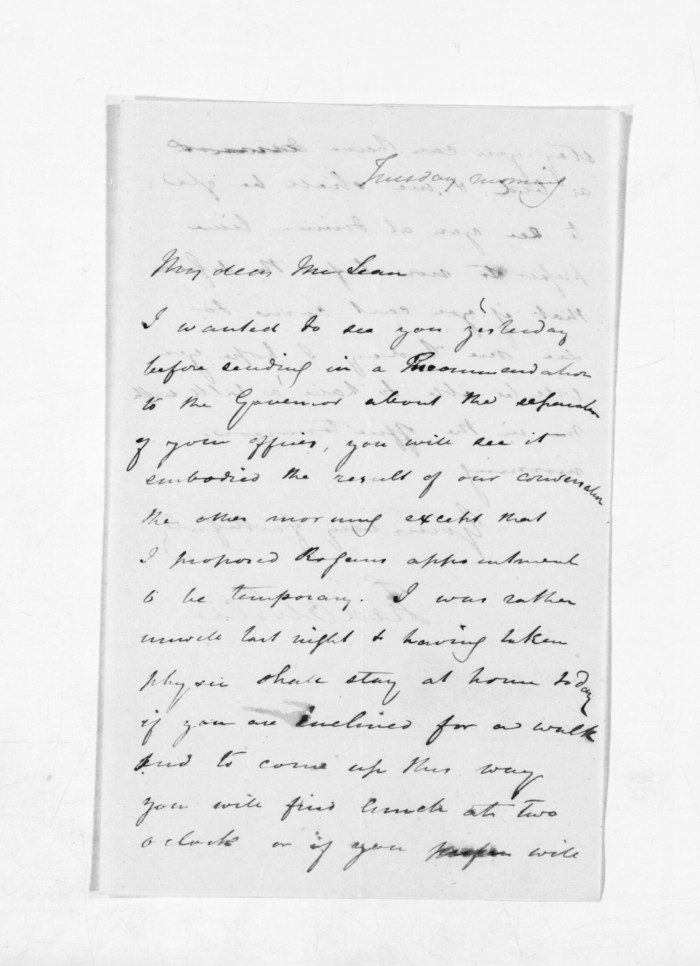 Tuesday morning
My dear McLean
I wanted to see you yesterday
before sending in a Recommendation
to the Governor about the separation
of your offices, you will see it
embodied the result of our conversation
the other morning except that
I proposed Rogans appointment
to be temporary. I was rather
unwell last night & having taken
physic shall stay at home today
if you are inclined for a walk
and to come up this way
you will find lunch at two
o'clock or if you will